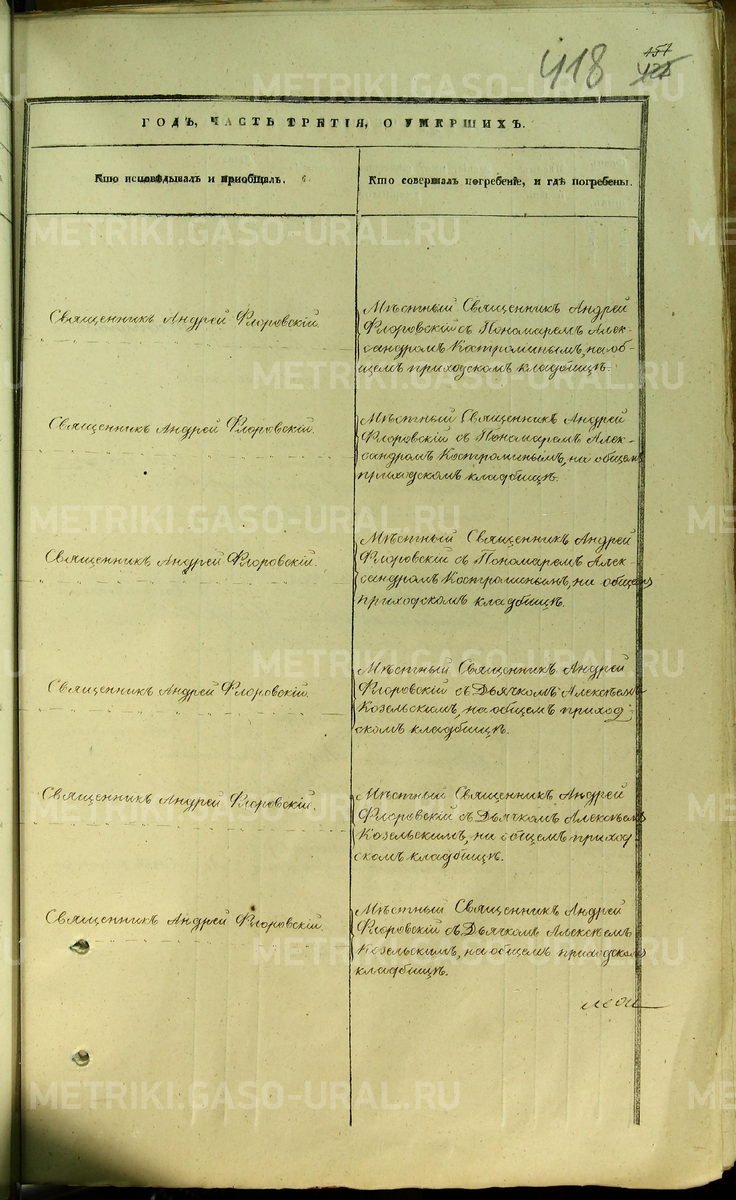 418
157
ГОДЪ, ЧАСТЬ ТРЕТІЯ, О УМЕРШИХЪ.
Кто исповѣдывалъ и приобщалъ.
Кто совершалъ погребеніе, и гдѣ погребены.
Священникъ Андрей Флоровскій.
Мѣстный Священникъ Андрей
Флоровскій съ Пономаремъ Алек-
сандромъ Костроминымъ, на об-
щемъ приходскомъ кладбищѣ.
Священникъ Андрей Флоровскій.
Мѣстный Священникъ Андрей
Флоровскій съ Пономаремъ Алек-
сандромъ Костроминымъ, на общемъ
приходскомъ кладбищѣ.
Священникъ Андрей Флоровскій.
Мѣстный Священникъ Андрей
Флоровскій съ Пономаремъ Алек-
сандромъ Костроминымъ, на общемъ
приходскомъ кладбищѣ.
Священникъ Андрей Флоровскій.
Мѣстный Священникъ Андрей
Флоровскій съ Дьячкомъ Алексѣемъ
Козельскимъ, на общемъ приход
скомъ кладбищѣ.
Священникъ Андрей Флоровскій.
Мѣстный Священникъ Андрей
Флоровскій съ Дьячкомъ Алексѣемъ
Козельскимъ, на общемъ приход
скомъ кладбищѣ.
Священникъ Андрей Флоровскій.
Мѣстный Священникъ Андрей
Флоровскій съ Дьячкомъ Алексѣемъ
Козельскимъ, на общемъ приходскомъ
кладбищѣ.
METRIKI.GASO-URAL.RU